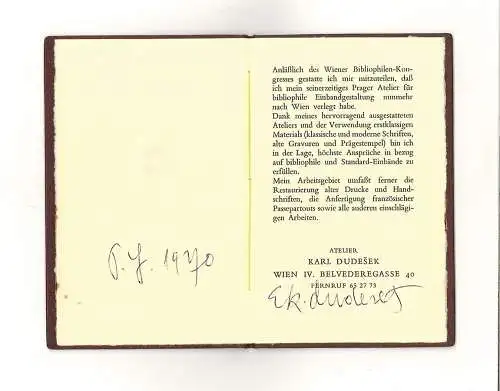 P. f. 1970
Anläßlich des Wiener Bibliophilen-Kon-
gresses gestatte ich mir mitzuteilen, daß
ich mein seinerzeitiges Prager Atelier für
bibliophile Einbandgestaltung nunmehr
nach Wien verlegt habe.
Dank meines hervorragend ausgestatteten
Ateliers und der Verwendung erstklassigen
Materials (klassische und moderne Schriften,
alte Gravuren und Prägestempel) bin ich
in der Lage, höchste Ansprüche in bezug
auf bibliophile und Standard-Einbände zu
erfüllen.
Mein Arbeitsgebiet umfaßt ferner die
Restaurierung alter Drucke und Hand-
schriften, die Anfertigung französischer
Passepartouts sowie alle anderen einschlägi-
gen Arbeiten.
ATELIER
KARL DUDEŠEK
WIEN IV. BELVEDEREGASSE 40
FERNRUF 65 27 73